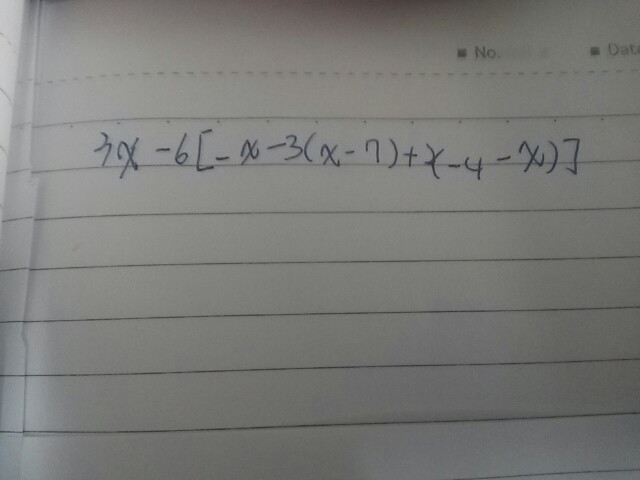 No. Date
3x - 6[-x - 3(x - 7) + (-4 - x)]